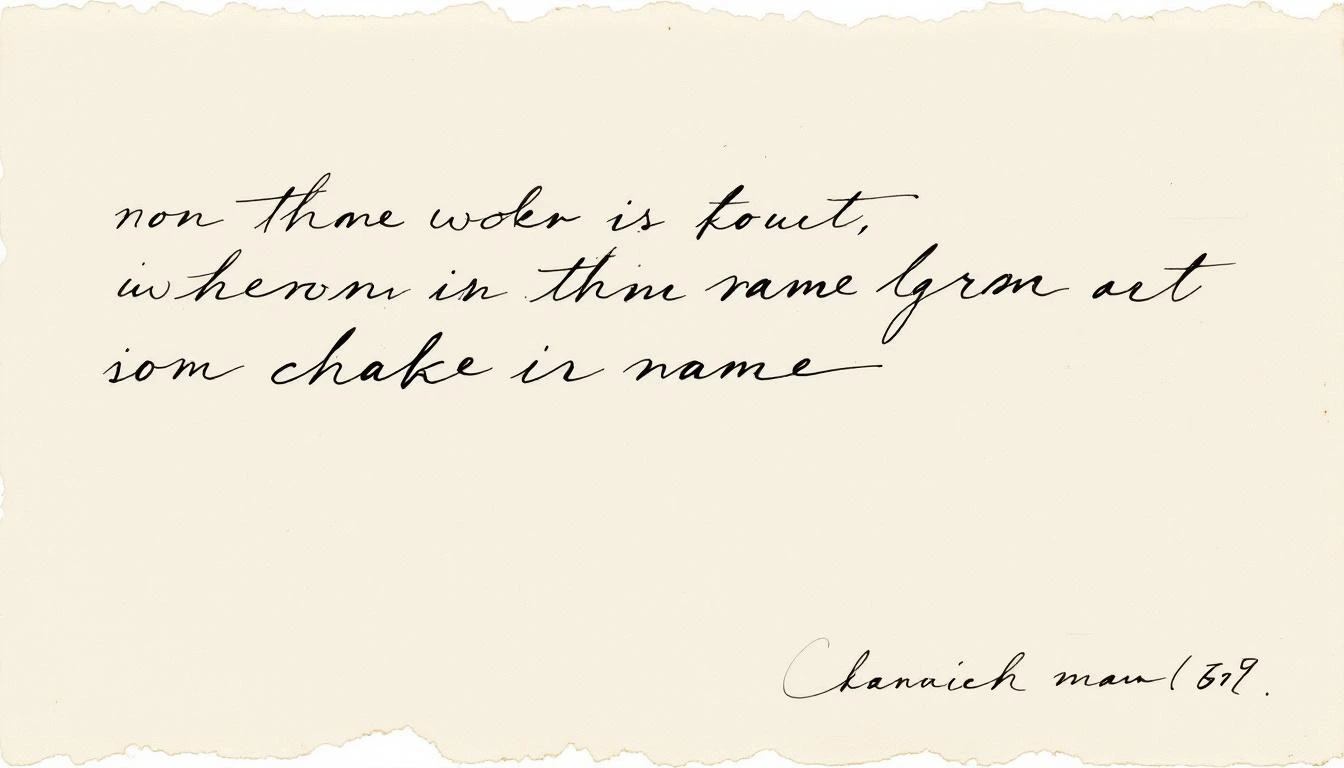 non thne woker is touct,
in herom in thine rame lgrm art
som chake ir name
Chanuich maw 1679.